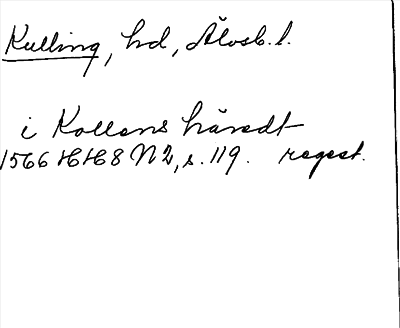 Kulling, hd, Älvsb. l.
i Kollans häredt
1566 HH8 N2, s. 119. regest.